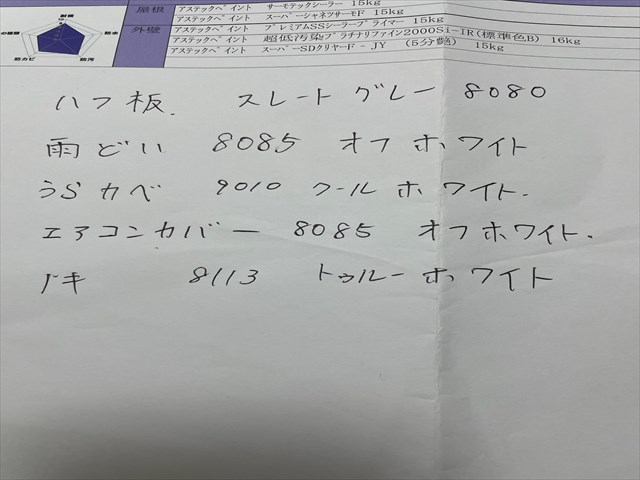 屋根 アステックペイント サーモテックシーラー 15kg
アステックペイント スーパーシャネツサーモF 15kg
外壁 アステックペイント プレミアムSSシーラープライマー 15kg
アステックペイント 超低汚染プラチナリファイン2000Si-IR(標準色B) 16kg
アステックペイント スーパーSDクリヤード-JY (5分艶) 15kg
耐候
防水
防汚
防カビ
ハフ板. スレートグレー 8080
雨どい 8085 オフホワイト
うSカベ 9010 クールホワイト.
エアコンカバー 8085 オフホワイト.
ノキ 8113 トゥルーホワイト